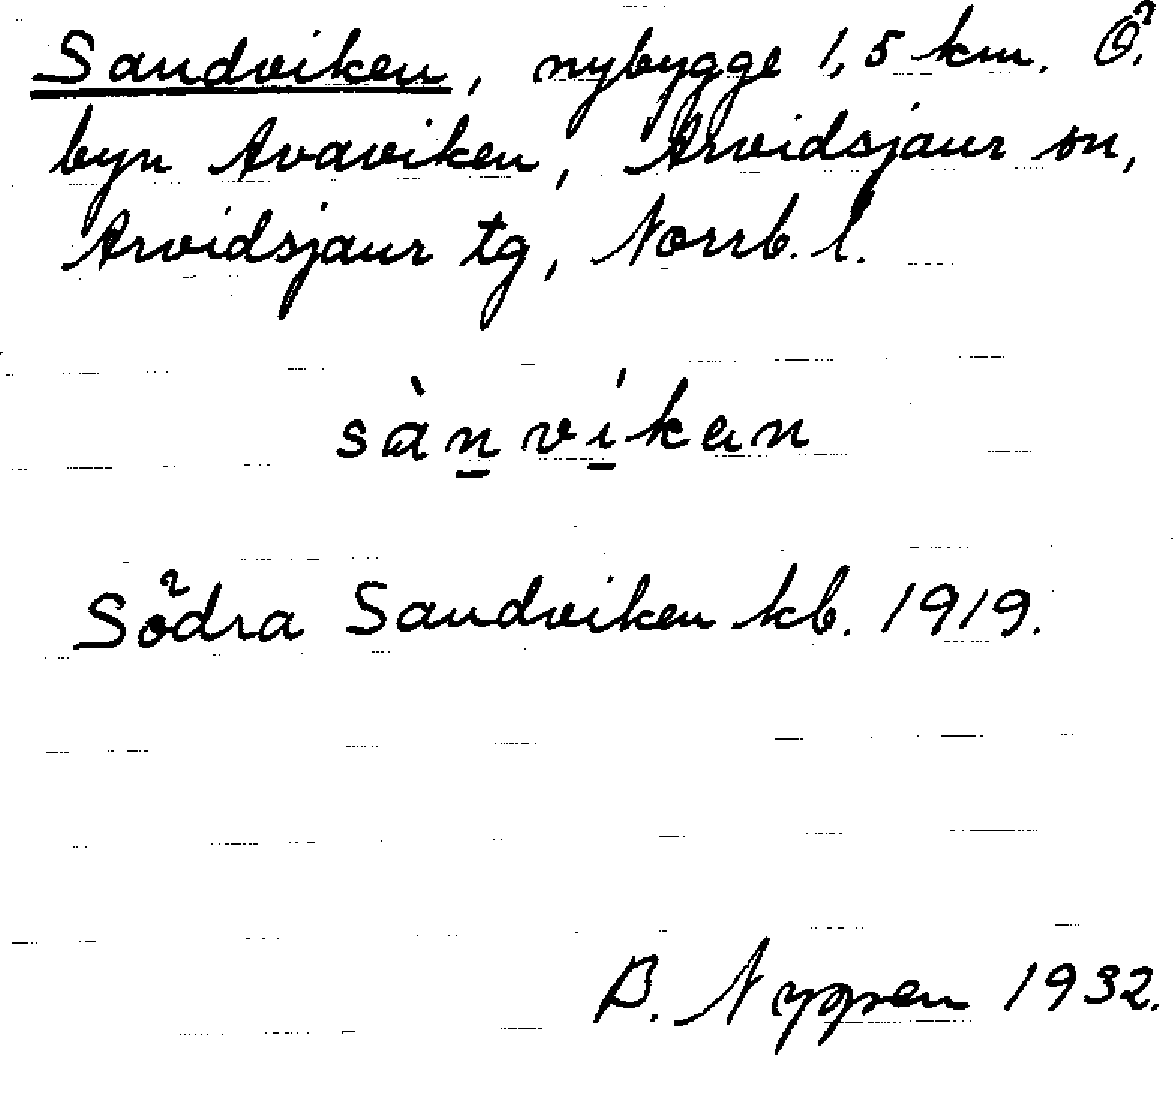 Sandviken, nybygge 1,5 km. Ö.
byn Avaviken, Arvidsjaur sn,
Arvidsjaur tg, Norrb. l.
sànvíkən
Södra Sandviken kb. 1919.
B. Nyppen 1932.